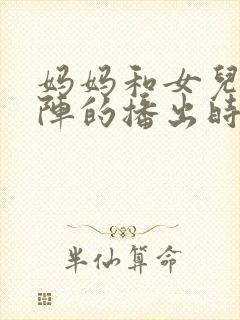 妈妈和女兒
陣的播出時
半仙算命